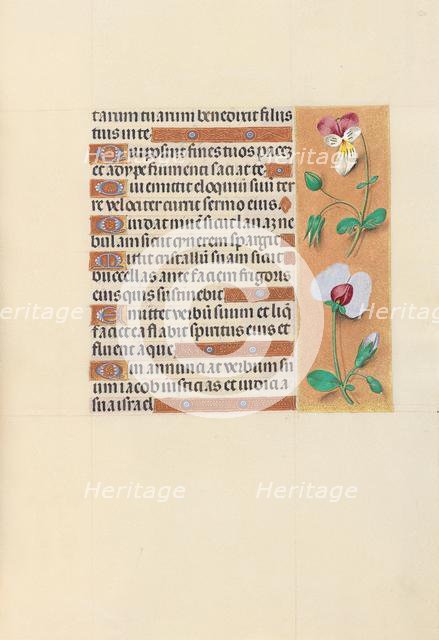 tarum tuarum benedixit filiis
tuis in te
Qui posuit fines tuos pacez
et adype frumenti saciat te
Qui emittit eloquium suu ter
re velociter currit sermo eius
Qui dat nivez sicut lanaz ne
bulam sicut cynerem spargit
Mittit cristallu suum sicut
buccellas ante faciem frigoris
eius quis sustinebit
Emittet verbu suum et liq
faciet ea flabit spiritus eius et
fluent aque
Qui annunciat verbum su
um iacob iusticias et iudicia
sua israel
Heritage Heritage
Heritage Heritage
Heritage Heritage